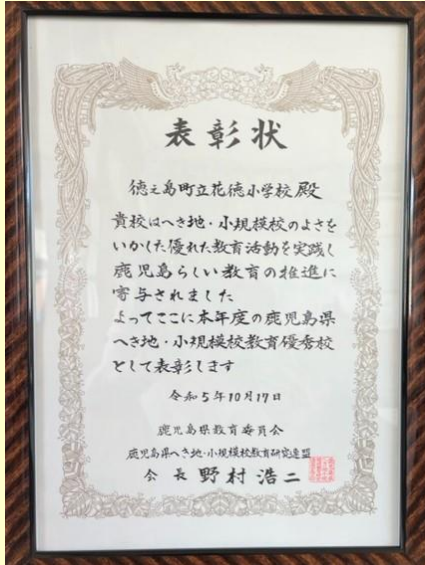 表彰状
徳之島町立花徳小学校殿
貴校はへき地・小規模校のよさを
いかした優れた教育活動を実践し
鹿児島らしい教育の推進に
寄与されました
よってここに本年度の鹿児島県
へき地・小規模校教育優秀校
として表彰します
令和5年10月17日
鹿児島県教育委員会
鹿児島県へき地・小規模校教育研究連盟
会長 野村浩二